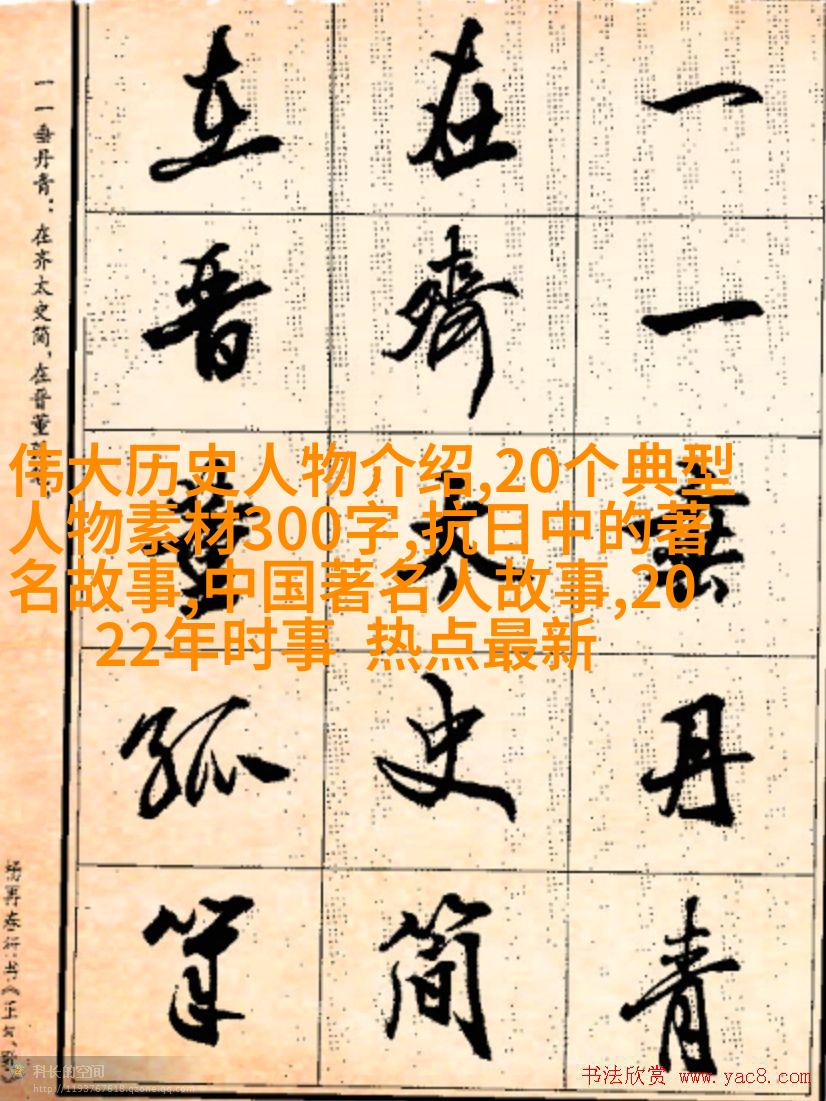 一一垂丹青
在齊太史简
在晋董狐筆
一一垂丹青：在齐太史简，在晋董
杨再春行书《正气歌》
伟大历史人物介绍,20个典型
人物素材300字,抗日中的著
名故事,中国著名人故事,20
22年时事 热点最新
科长的空间
http://1193767618.qzone.qq.com
书法欣赏 www.yac8.com